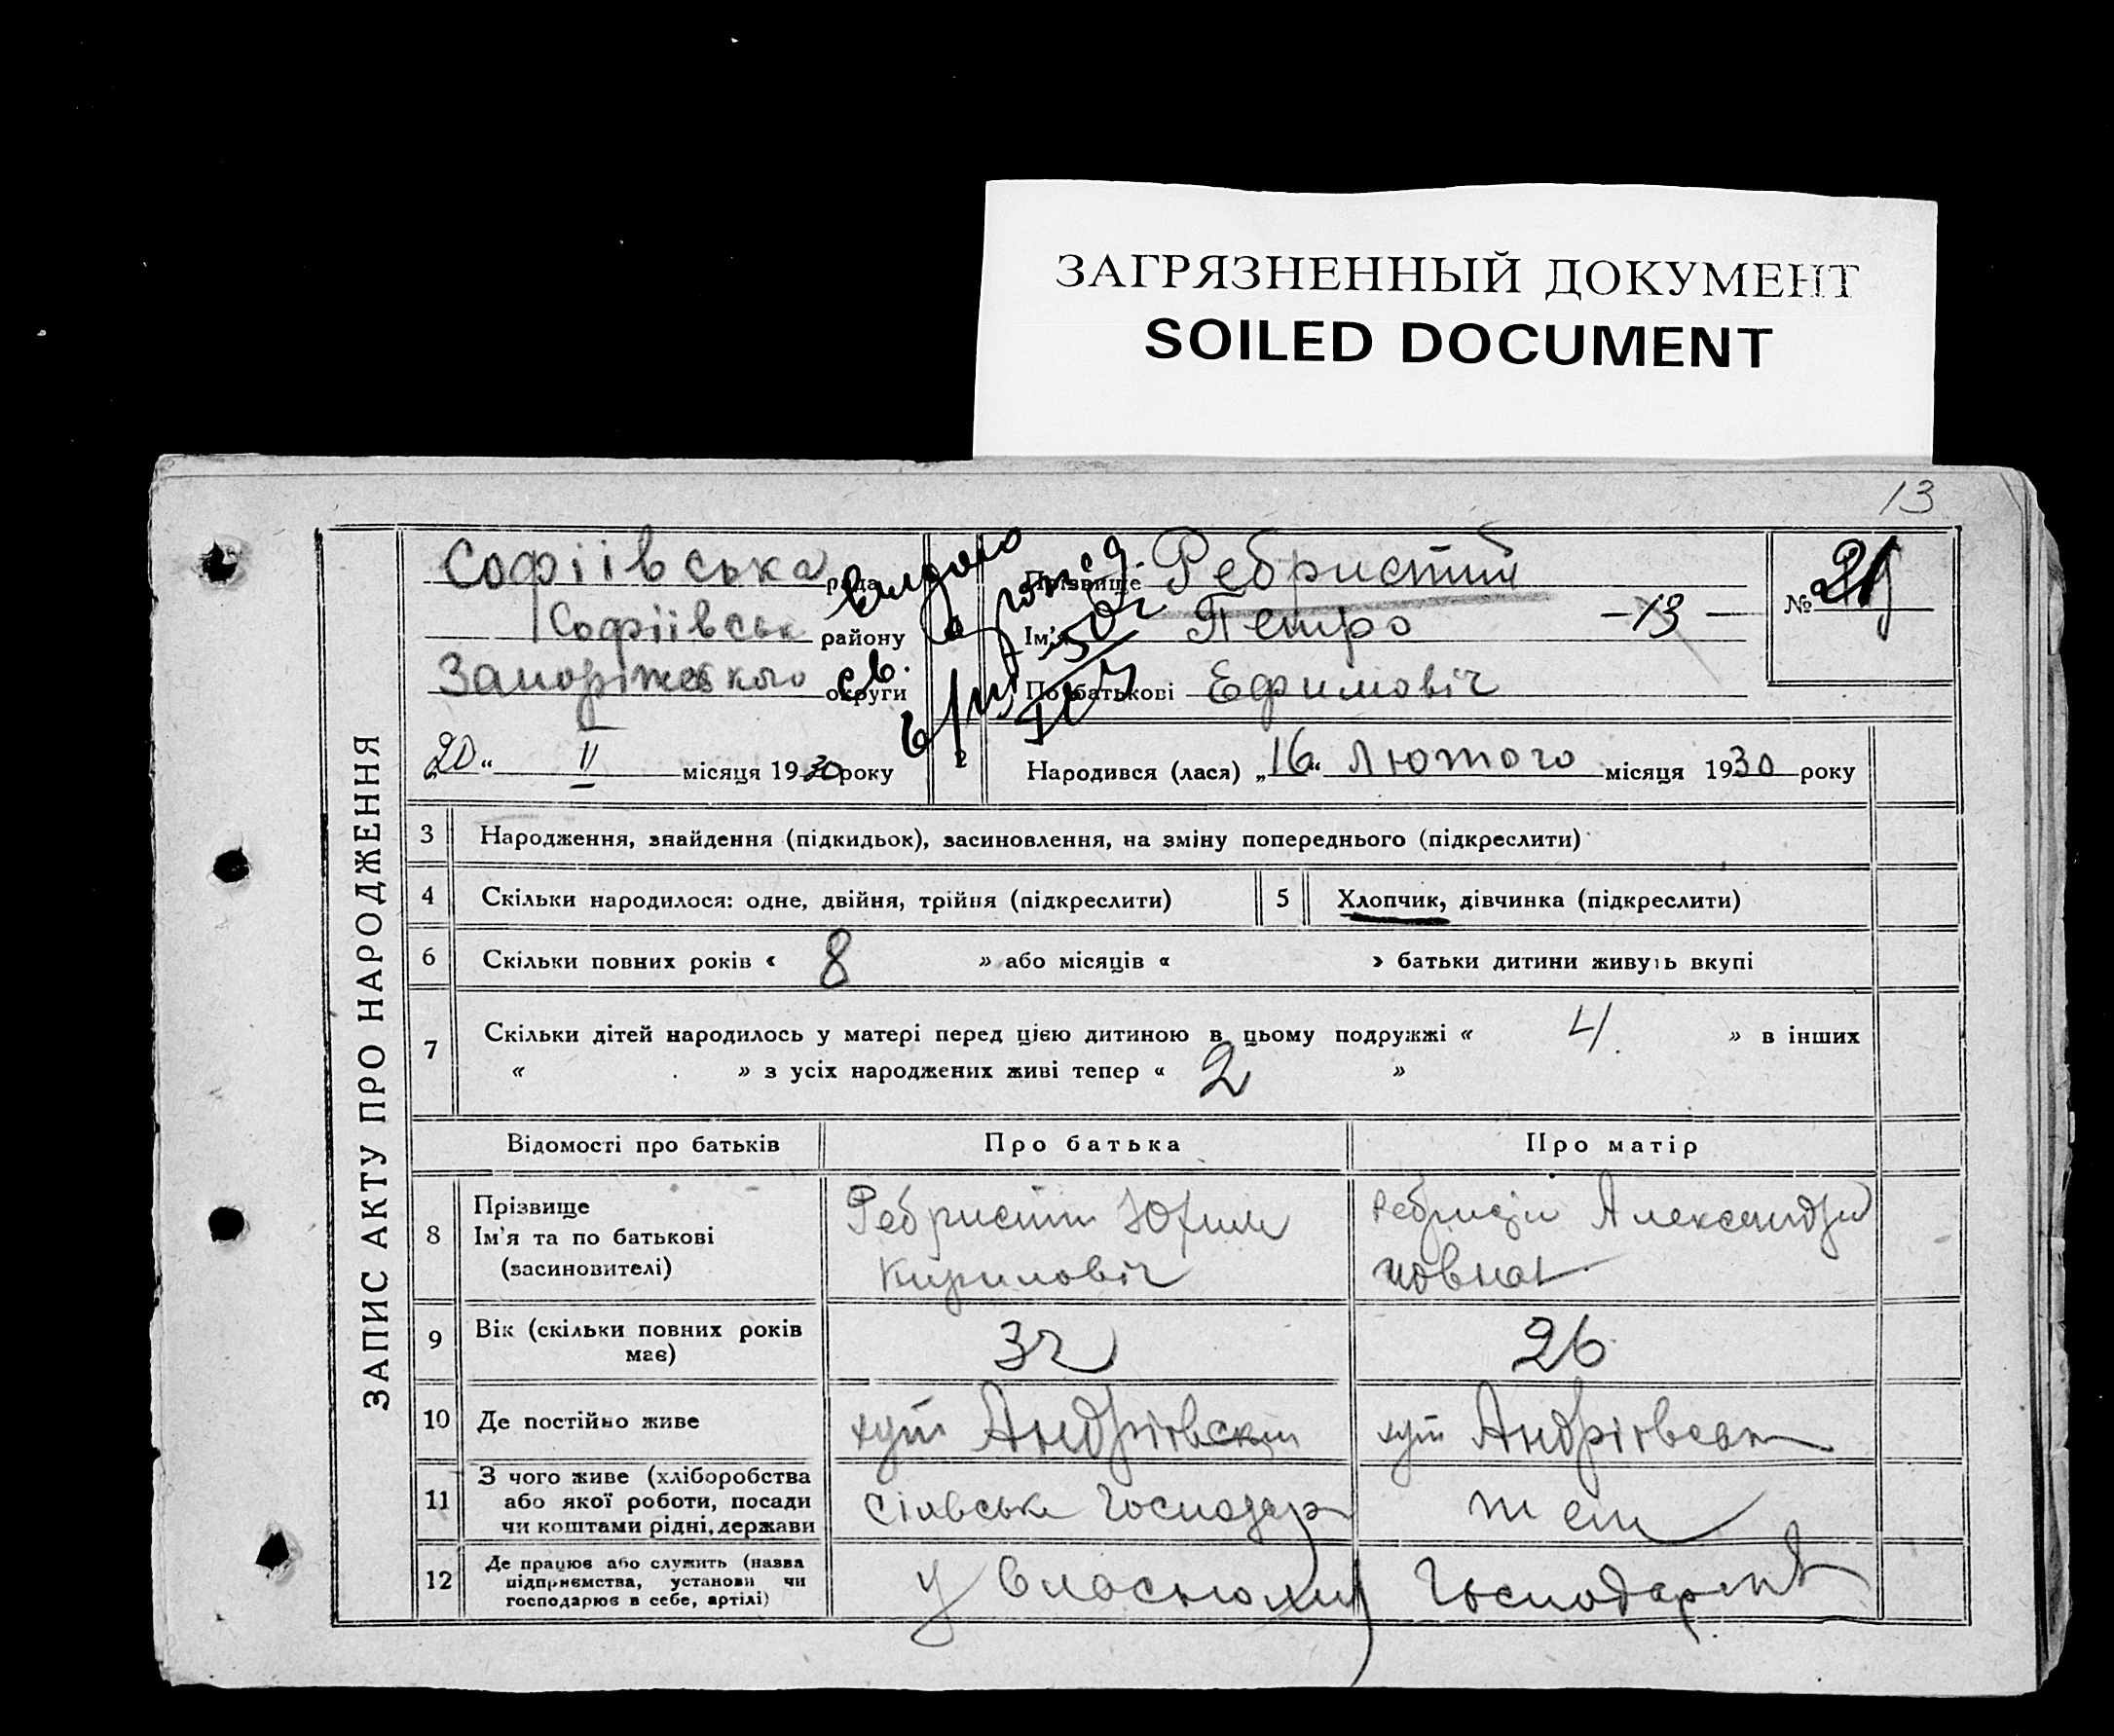 ЗАГРЯЗНЕННЫЙ ДОКУМЕНТ
SOILED DOCUMENT
13
ЗАПИС АКТУ ПРО НАРОДЖЕННЯ
Софіївська рада
Софіївськ району
округи
„20“ II місяця 1930 року
Видано
Прізвище Ребристий
Ім'я Петро -13-
По батькові Ефимовіч
№
2 Народився (лася) „16“ Лютого місяця 1930 року
3 Народження, знайдення (підкидьок), засиновлення, на зміну попереднього (підкреслити)
4 Скільки народилося: одне, двійня, трійня (підкреслити) 5 Хлопчик, дівчинка (підкреслити)
6 Скільки повних років « 8 » або місяців « » батьки дитини живуть вкупі
7 Скільки дітей народилось у матері перед цією дитиною в цьому подружжі « 4 » в інших
« » з усіх народжених живі тепер « 2 »
Відомості про батьків Про батька Про матір
8 Прізвище
Ім'я та по батькові
(засиновителі)
Юхим
Кирилович
9 Вік (скільки повних років
має)
32 26
10 Де постійно живе хут хут
11 З чого живе (хліборобства
або якої роботи, посади
чи коштами рідні, держави
Сільське господар
12 Де працює або служить (назва
підприємства, установи чи
господарює в себе, артілі)
у власному